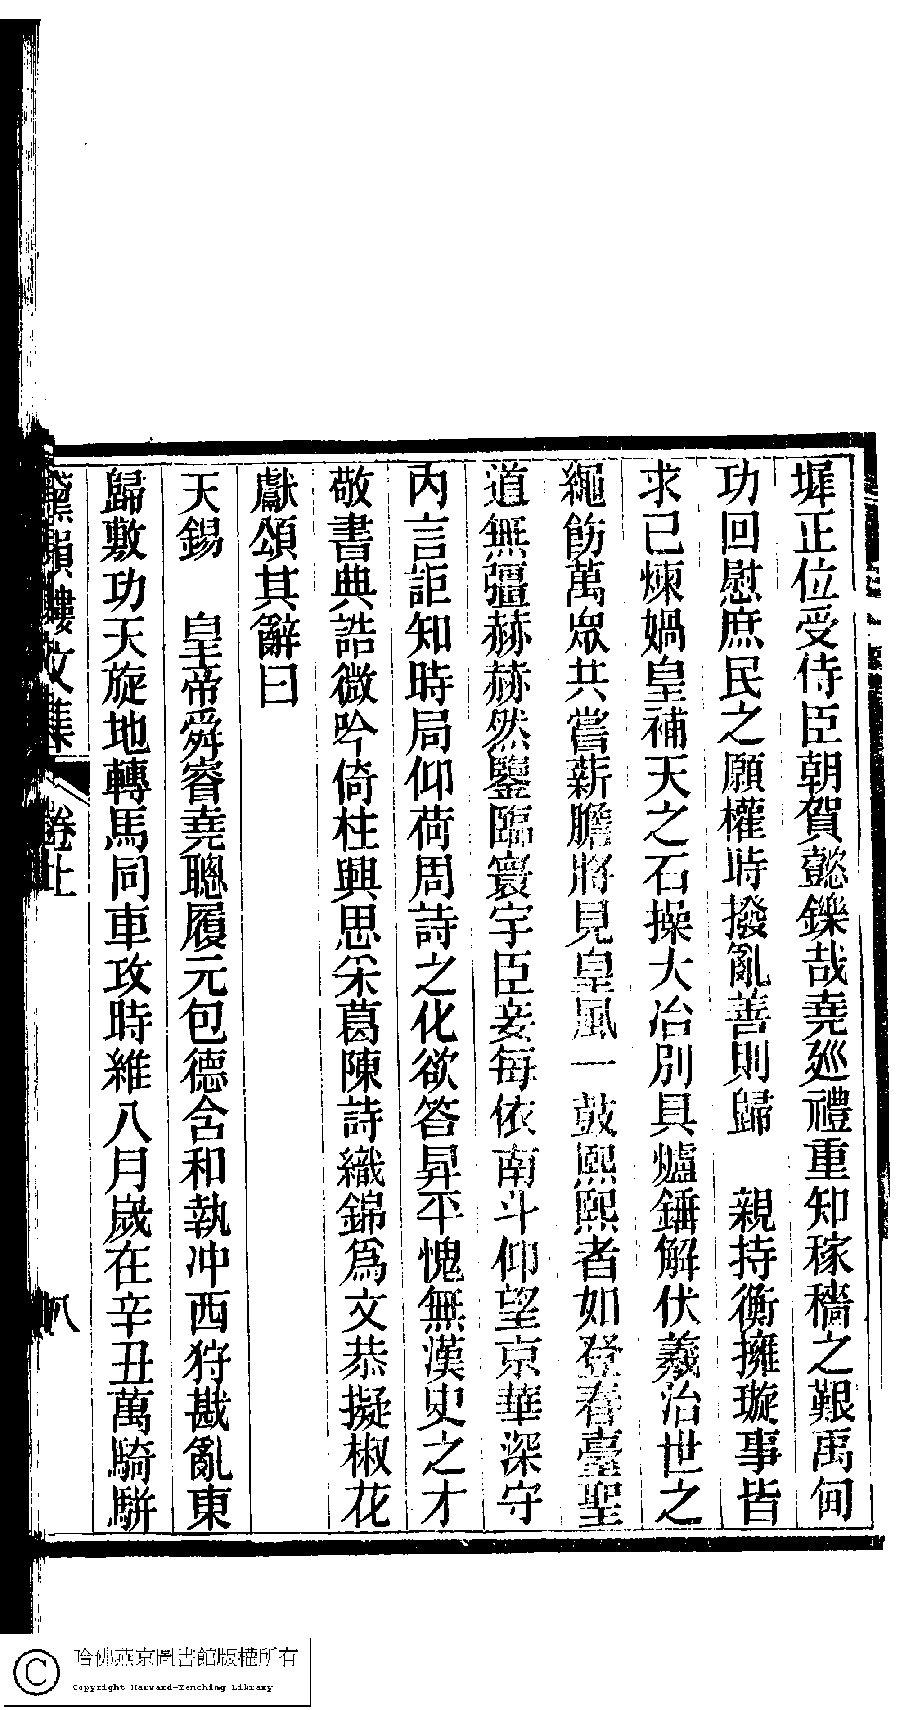 墀正位受侍臣朝賀懿鑠哉堯廵禮重知稼穡之艱禹甸
功回慰庶民之願權時撥亂善則歸　親持衡擁璇事皆
求已煉媧皇補天之石操大冶別具爐錘解伏羲治世之
繩飭萬眾共嘗薪膽將見皇風一鼓熙熙者如登春臺聖
道無疆赫赫然鑒臨寰宇臣妾每依南斗仰望京華深守
內言詎知時局仰荷周詩之化欲答昇平愧無漢史之才
敬書典誥微吟倚柱興思采葛陳詩織錦爲文恭擬椒花
獻頌其辭曰
天錫　皇帝舜睿堯聰履元包德含和執冲西狩戡亂東
歸敷功天旋地轉馬同車攻時維八月歲在辛丑萬騎駢
黛韻樓文集
卷上
八
哈佛燕京圖書館版權所有
Copyright Harvard-Yenching Library